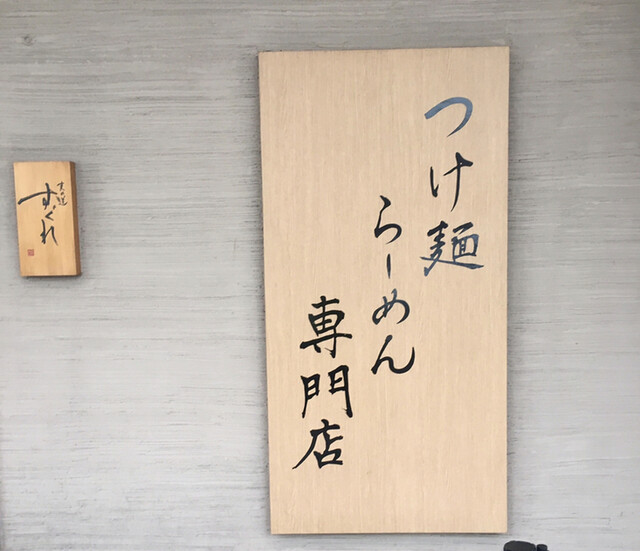 つけ麺
らーめん
専門店
すぐれ